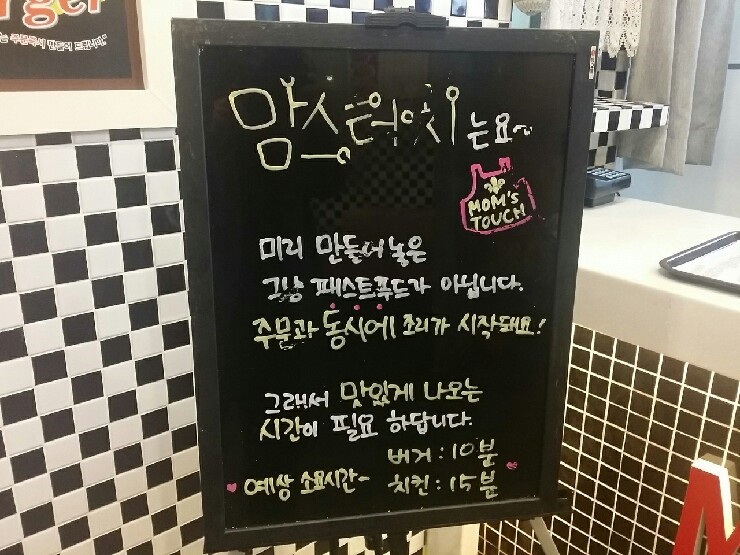 rger
주문즉시 만들어 드립니다"
맘스터치는요~
MOM'S
TOUCH
미리 만들어놓은
그냥 패스트푸드가 아닙니다.
주문과 동시에 조리가 시작돼요!
그래서 맛있게 나오는
시간이 필요 하답니다.
버거 : 10분
예상 소요시간~ 치킨 : 15분
M